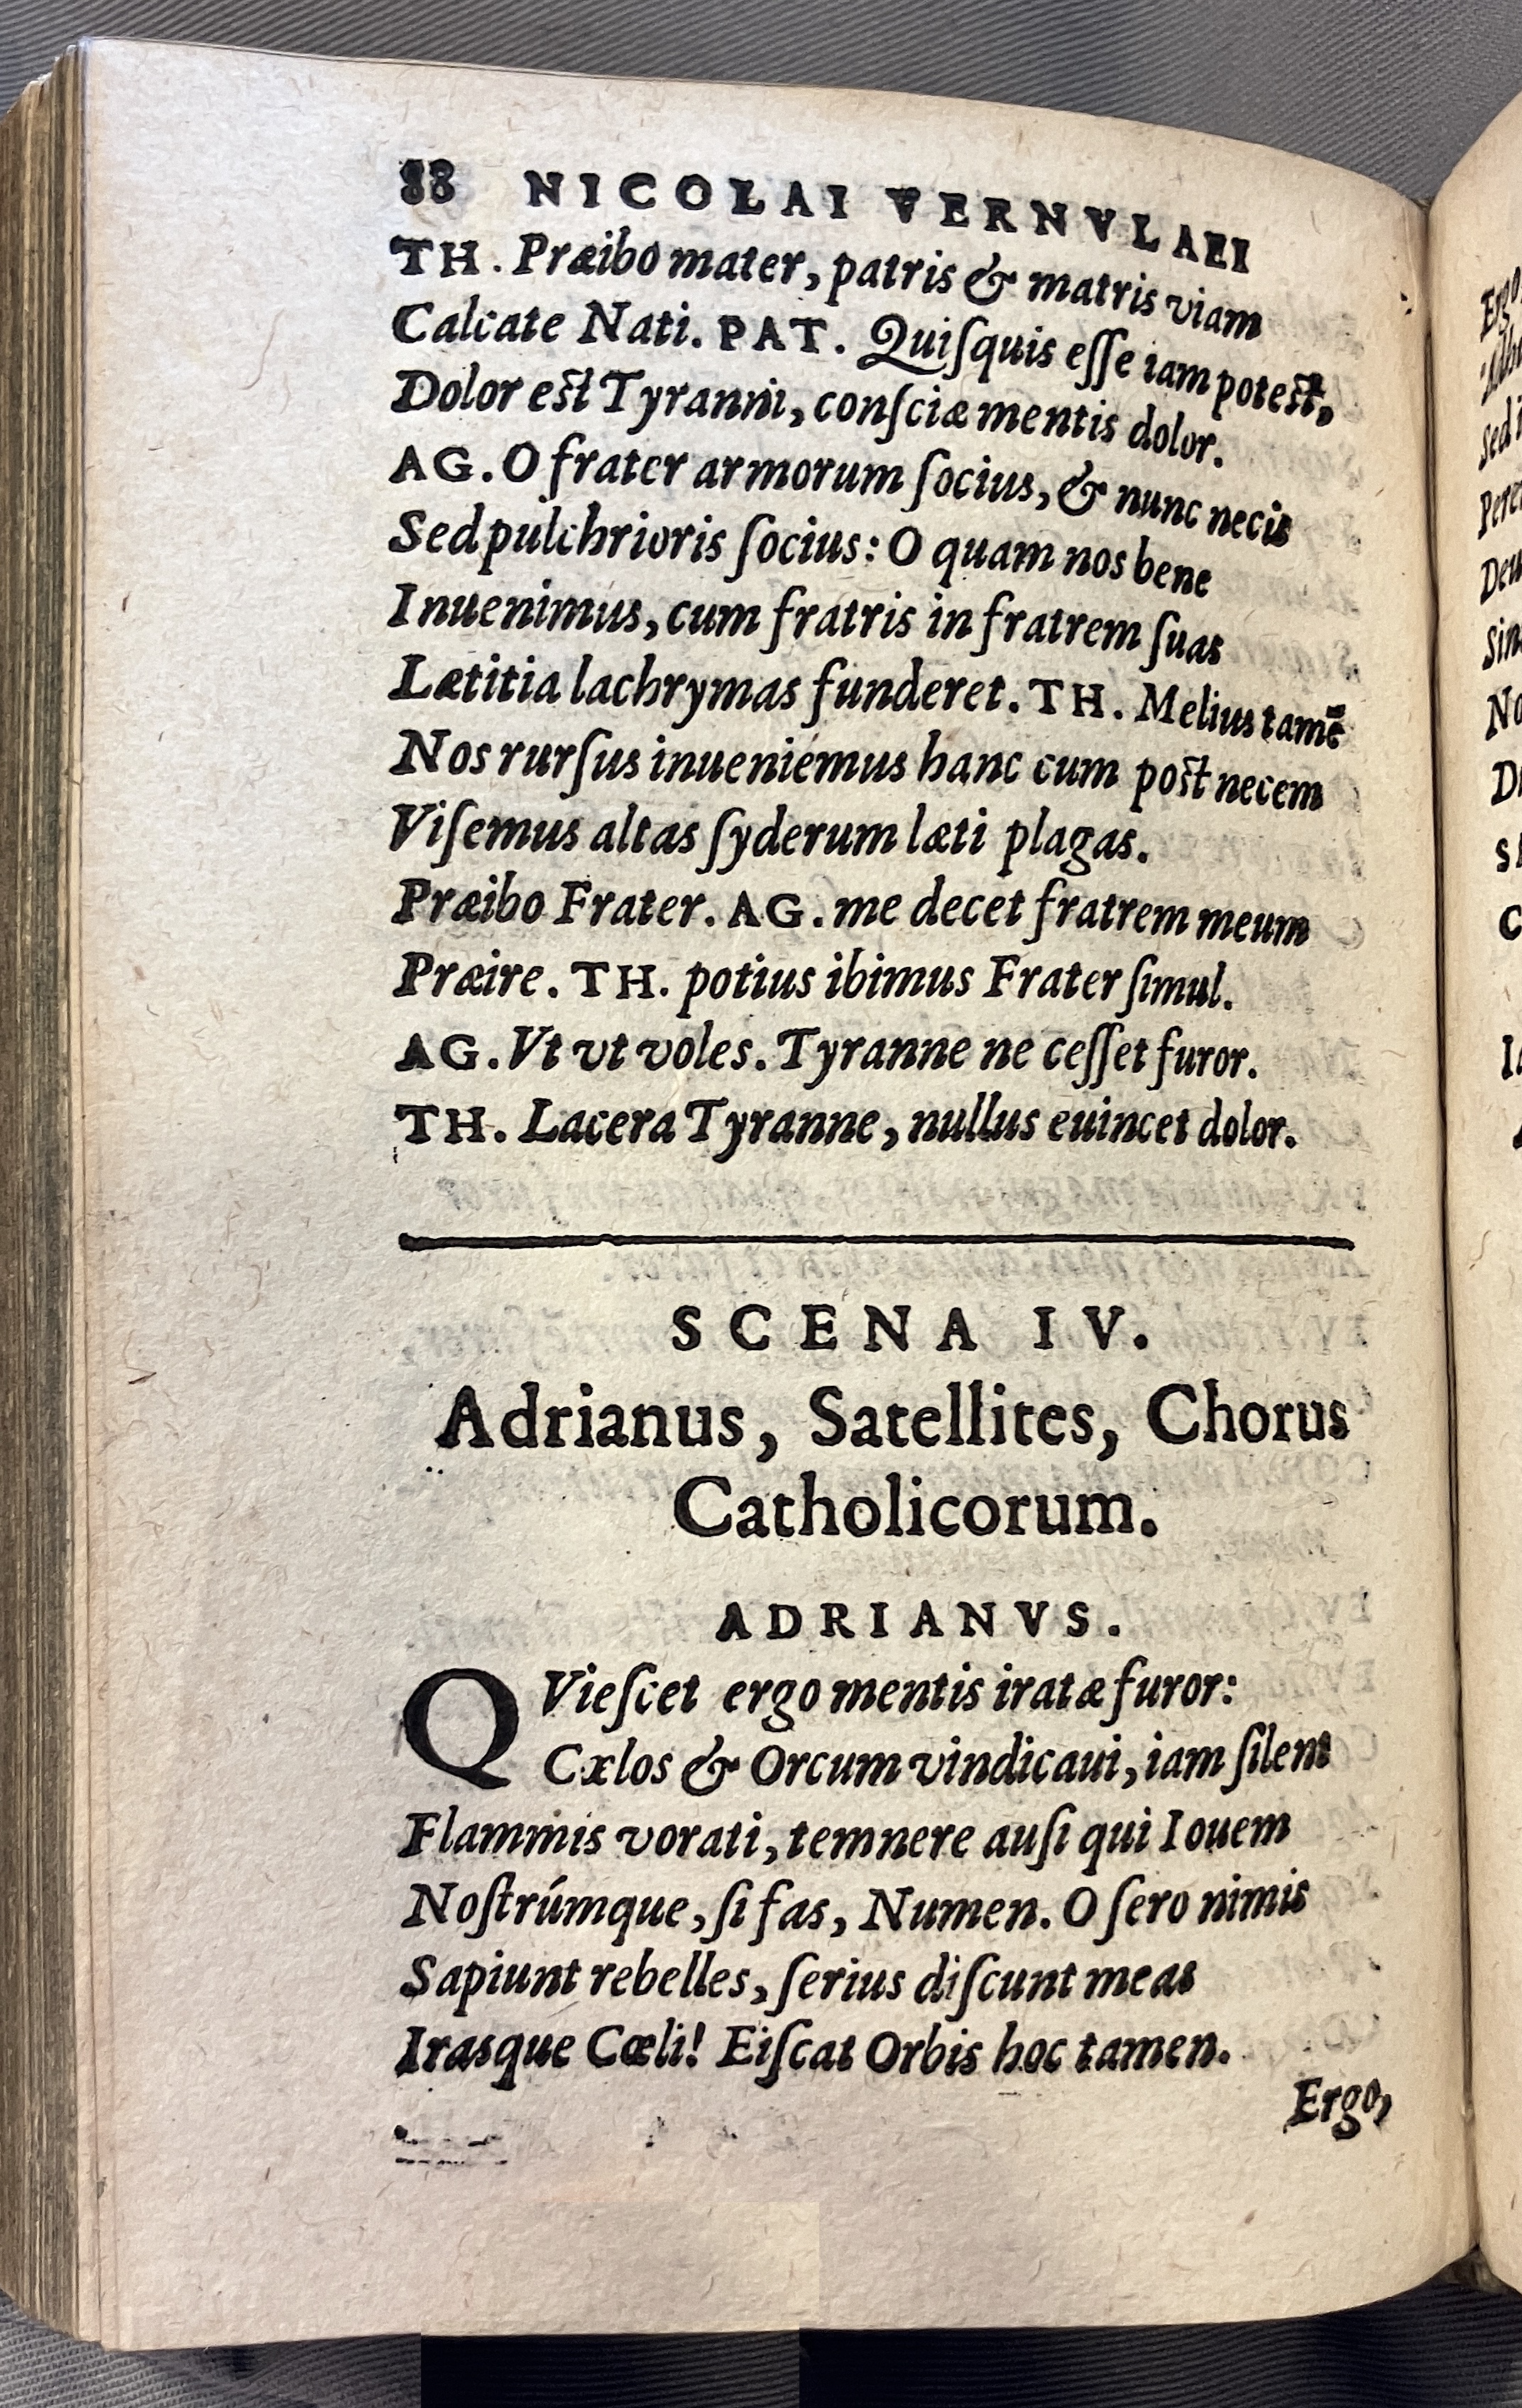 88 NICOLAI VERNVLAEI
TH. Præibo mater, patris & matris viam
Calcate Nati. PAT. Quiſquis eſſe iam poteſt,
Dolor eſt Tyranni, conſciæ mentis dolor.
AG. O frater armorum ſocius, & nunc necis
Sed pulchrioris ſocius: O quam nos bene
Inuenimus, cum fratris in fratrem ſuas
Lætitia lachrymas funderet. TH. Melius tamē
Nos rurſus inueniemus hanc cum poſt necem
Viſemus altas ſyderum læti plagas.
Præibo Frater. AG. me decet fratrem meum
Præire. TH. potius ibimus Frater ſimul.
AG. Vt vt voles. Tyranne ne ceſſet furor.
TH. Lacera Tyranne, nullus euincet dolor.
SCENA IV.
Adrianus, Satellites, Chorus
Catholicorum.
ADRIANVS.
QVieſcet ergo mentis iratæ furor:
Cælos & Orcum vindicaui, iam ſilent
Flammis vorati, temnere auſi qui Iouem
Noſtrúmque, ſi fas, Numen. O ſero nimis
Sapiunt rebelles, ſerius diſcunt meas
Irasque Cœli! Eiſcat Orbis hoc tamen.
Ergo,